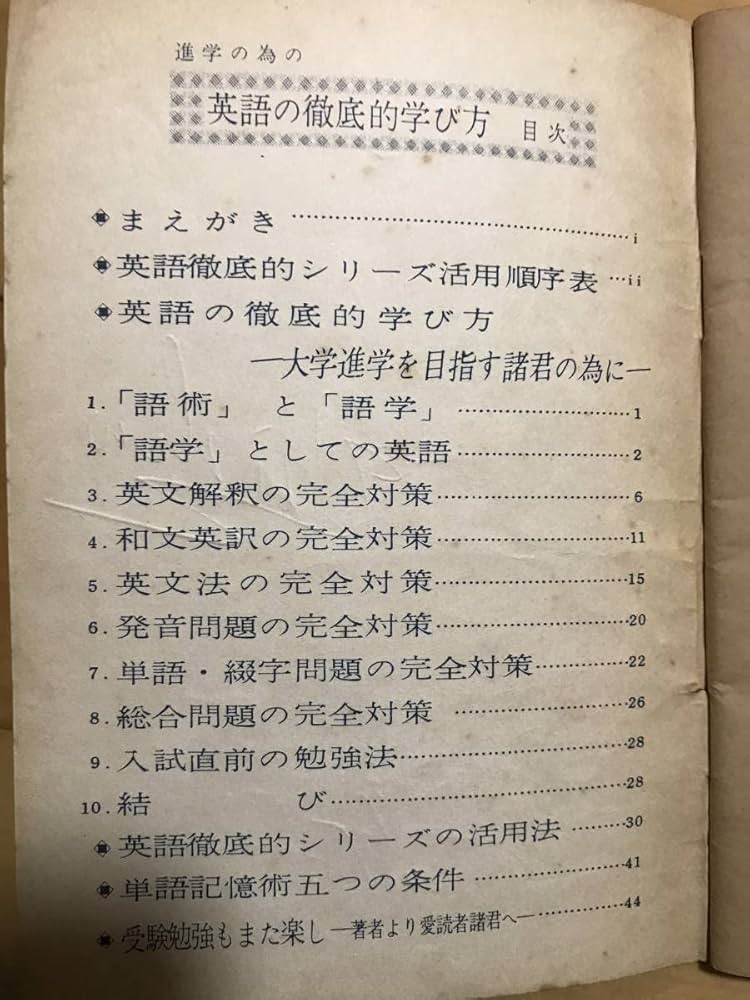 進学の為の
英語の徹底的学び方 目次
まえがき……………………………i
英語徹底的シリーズ活用順序表…ii
英語の徹底的学び方
―大学進学を目指す諸君の為に―
1.「語術」と「語学」……………………1
2.「語学」としての英語……………………2
3. 英文解釈の完全対策……………………6
4. 和文英訳の完全対策……………………11
5. 英文法の完全対策……………………15
6. 発音問題の完全対策……………………20
7. 単語・綴字問題の完全対策……………22
8. 総合問題の完全対策 …………………26
9. 入試直前の勉強法………………………28
10. 結び……………………………28
英語徹底的シリーズの活用法 ………30
単語記憶術五つの条件 ………………41
受験勉強もまた楽し―著者より愛読者諸君へ―…………44